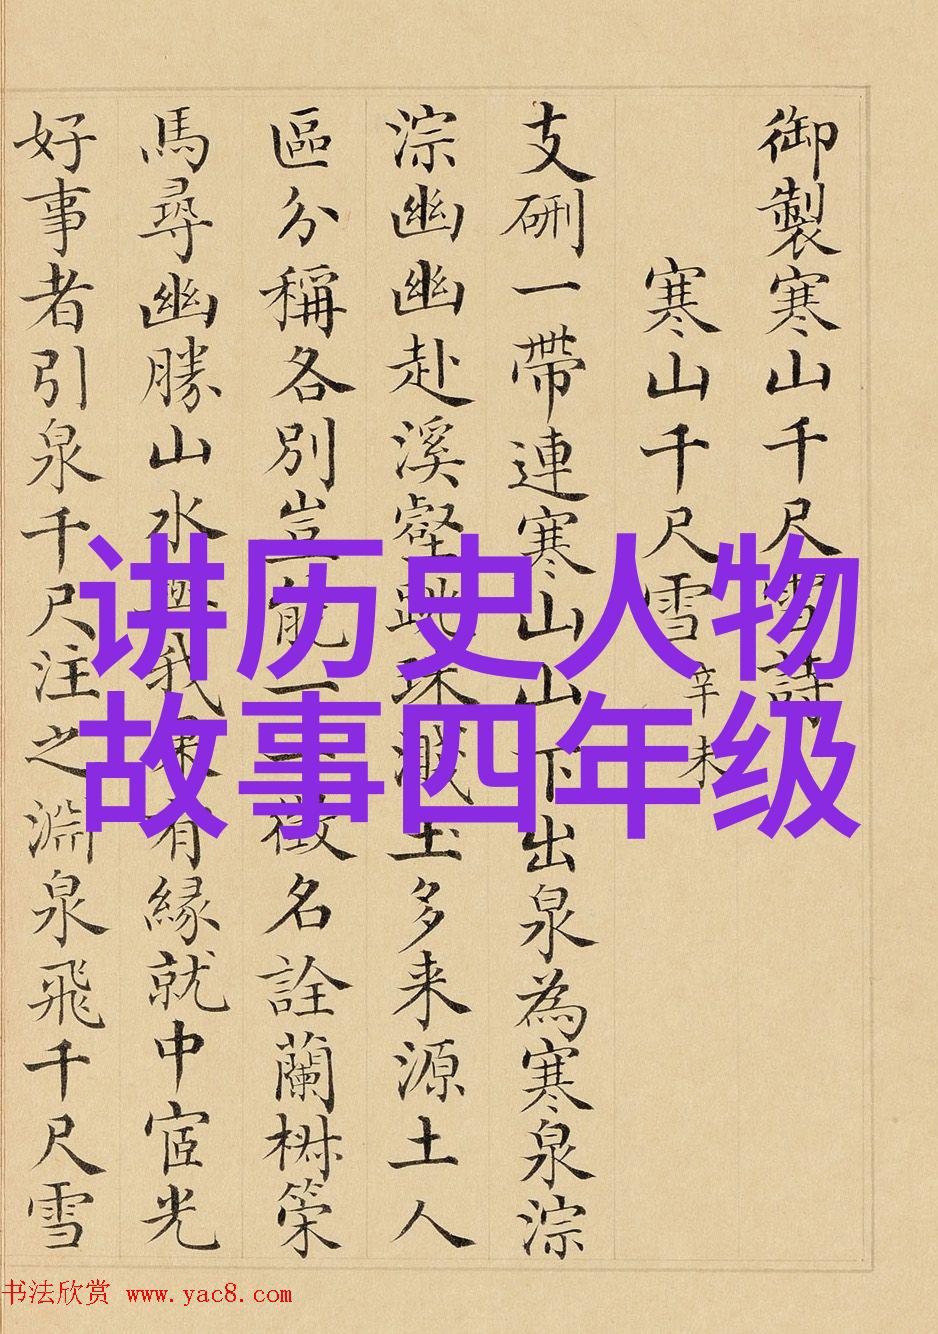 御製寒山千尺雪詩
寒山千尺雪 辛未
支硎一帶連寒山山下出泉為寒泉淙
淙幽幽赴溪壑跳珠濺玉多来源土人
區分稱各別豈能一一徵名詮蘭椒策
馬尋幽勝山水與我果有緣就中宧光
好事者引泉千尺注之淵泉飛千尺雪
讲历史人物
故事四年级
书法欣赏 www.yac8.com